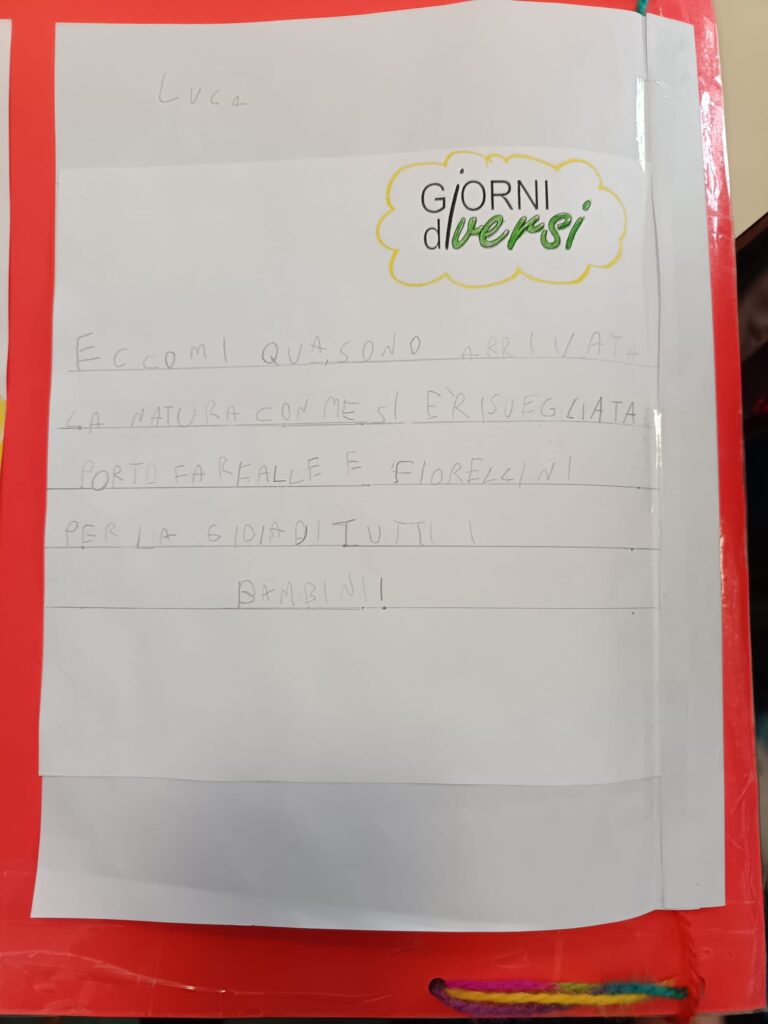 LUCA
GIORNI
diversi
ECCOMI QUA, SONO ARRIVATA
LA NATURA CON ME SI È RISVEGLIATA
PORTO FARFALLE E FIORELLINI
PER LA GIOIA DI TUTTI I
BAMBINI!